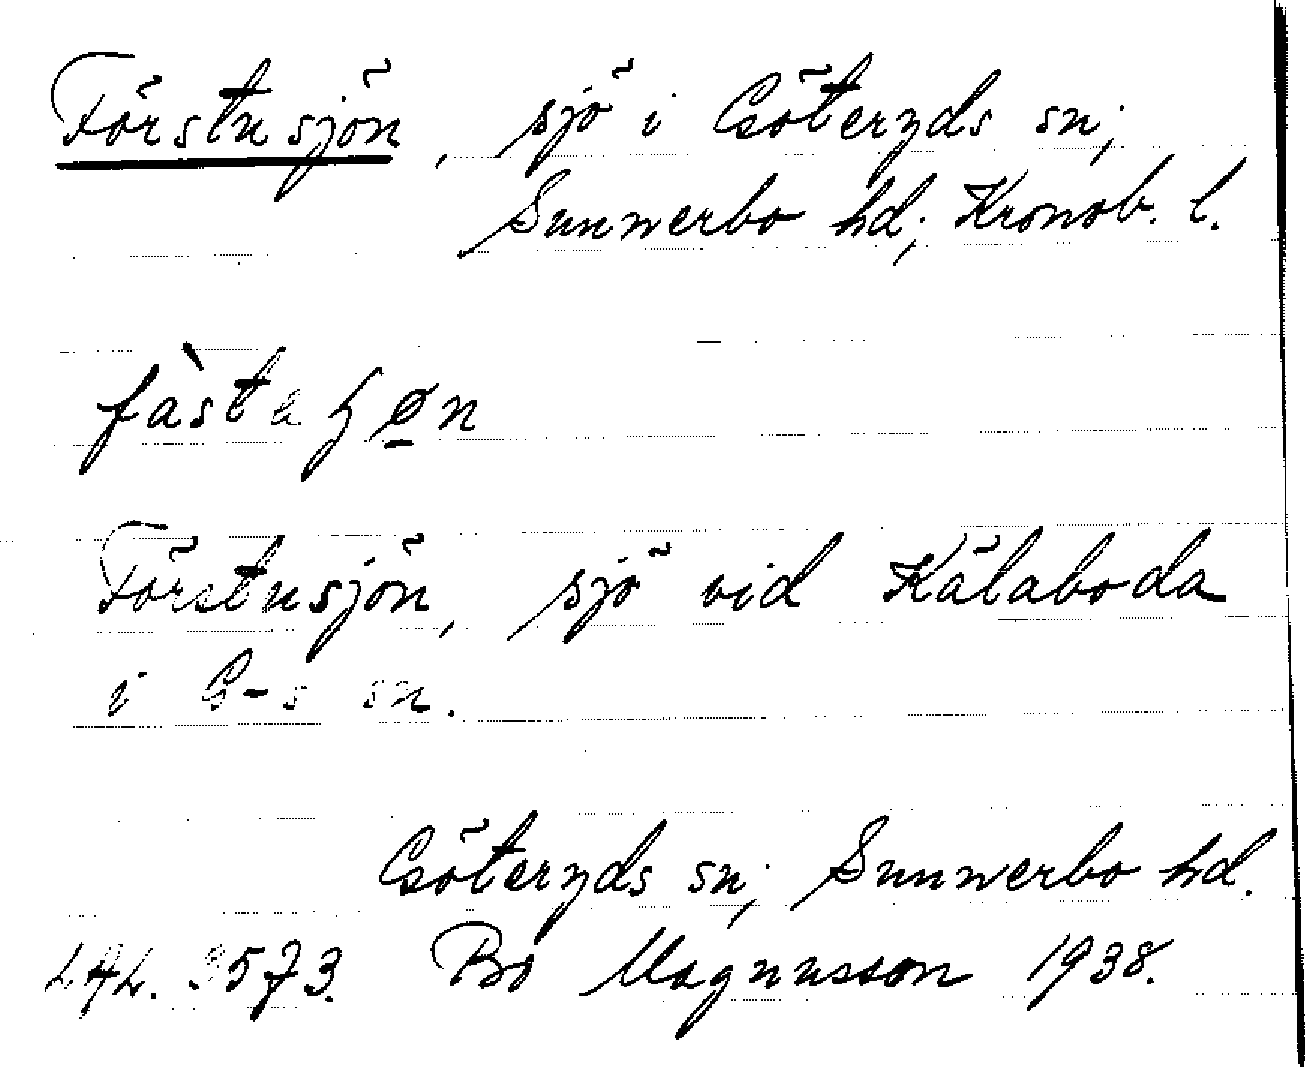 Förstusjön, sjö i Göteryds sn;
Sunnerbo hd; Kronob. l.
Förstusjön, sjö vid Kälaboda
i G-s sn.
Göteryds sn; Sunnerbo hd.
LAL. 3573. Bo Magnusson 1938.